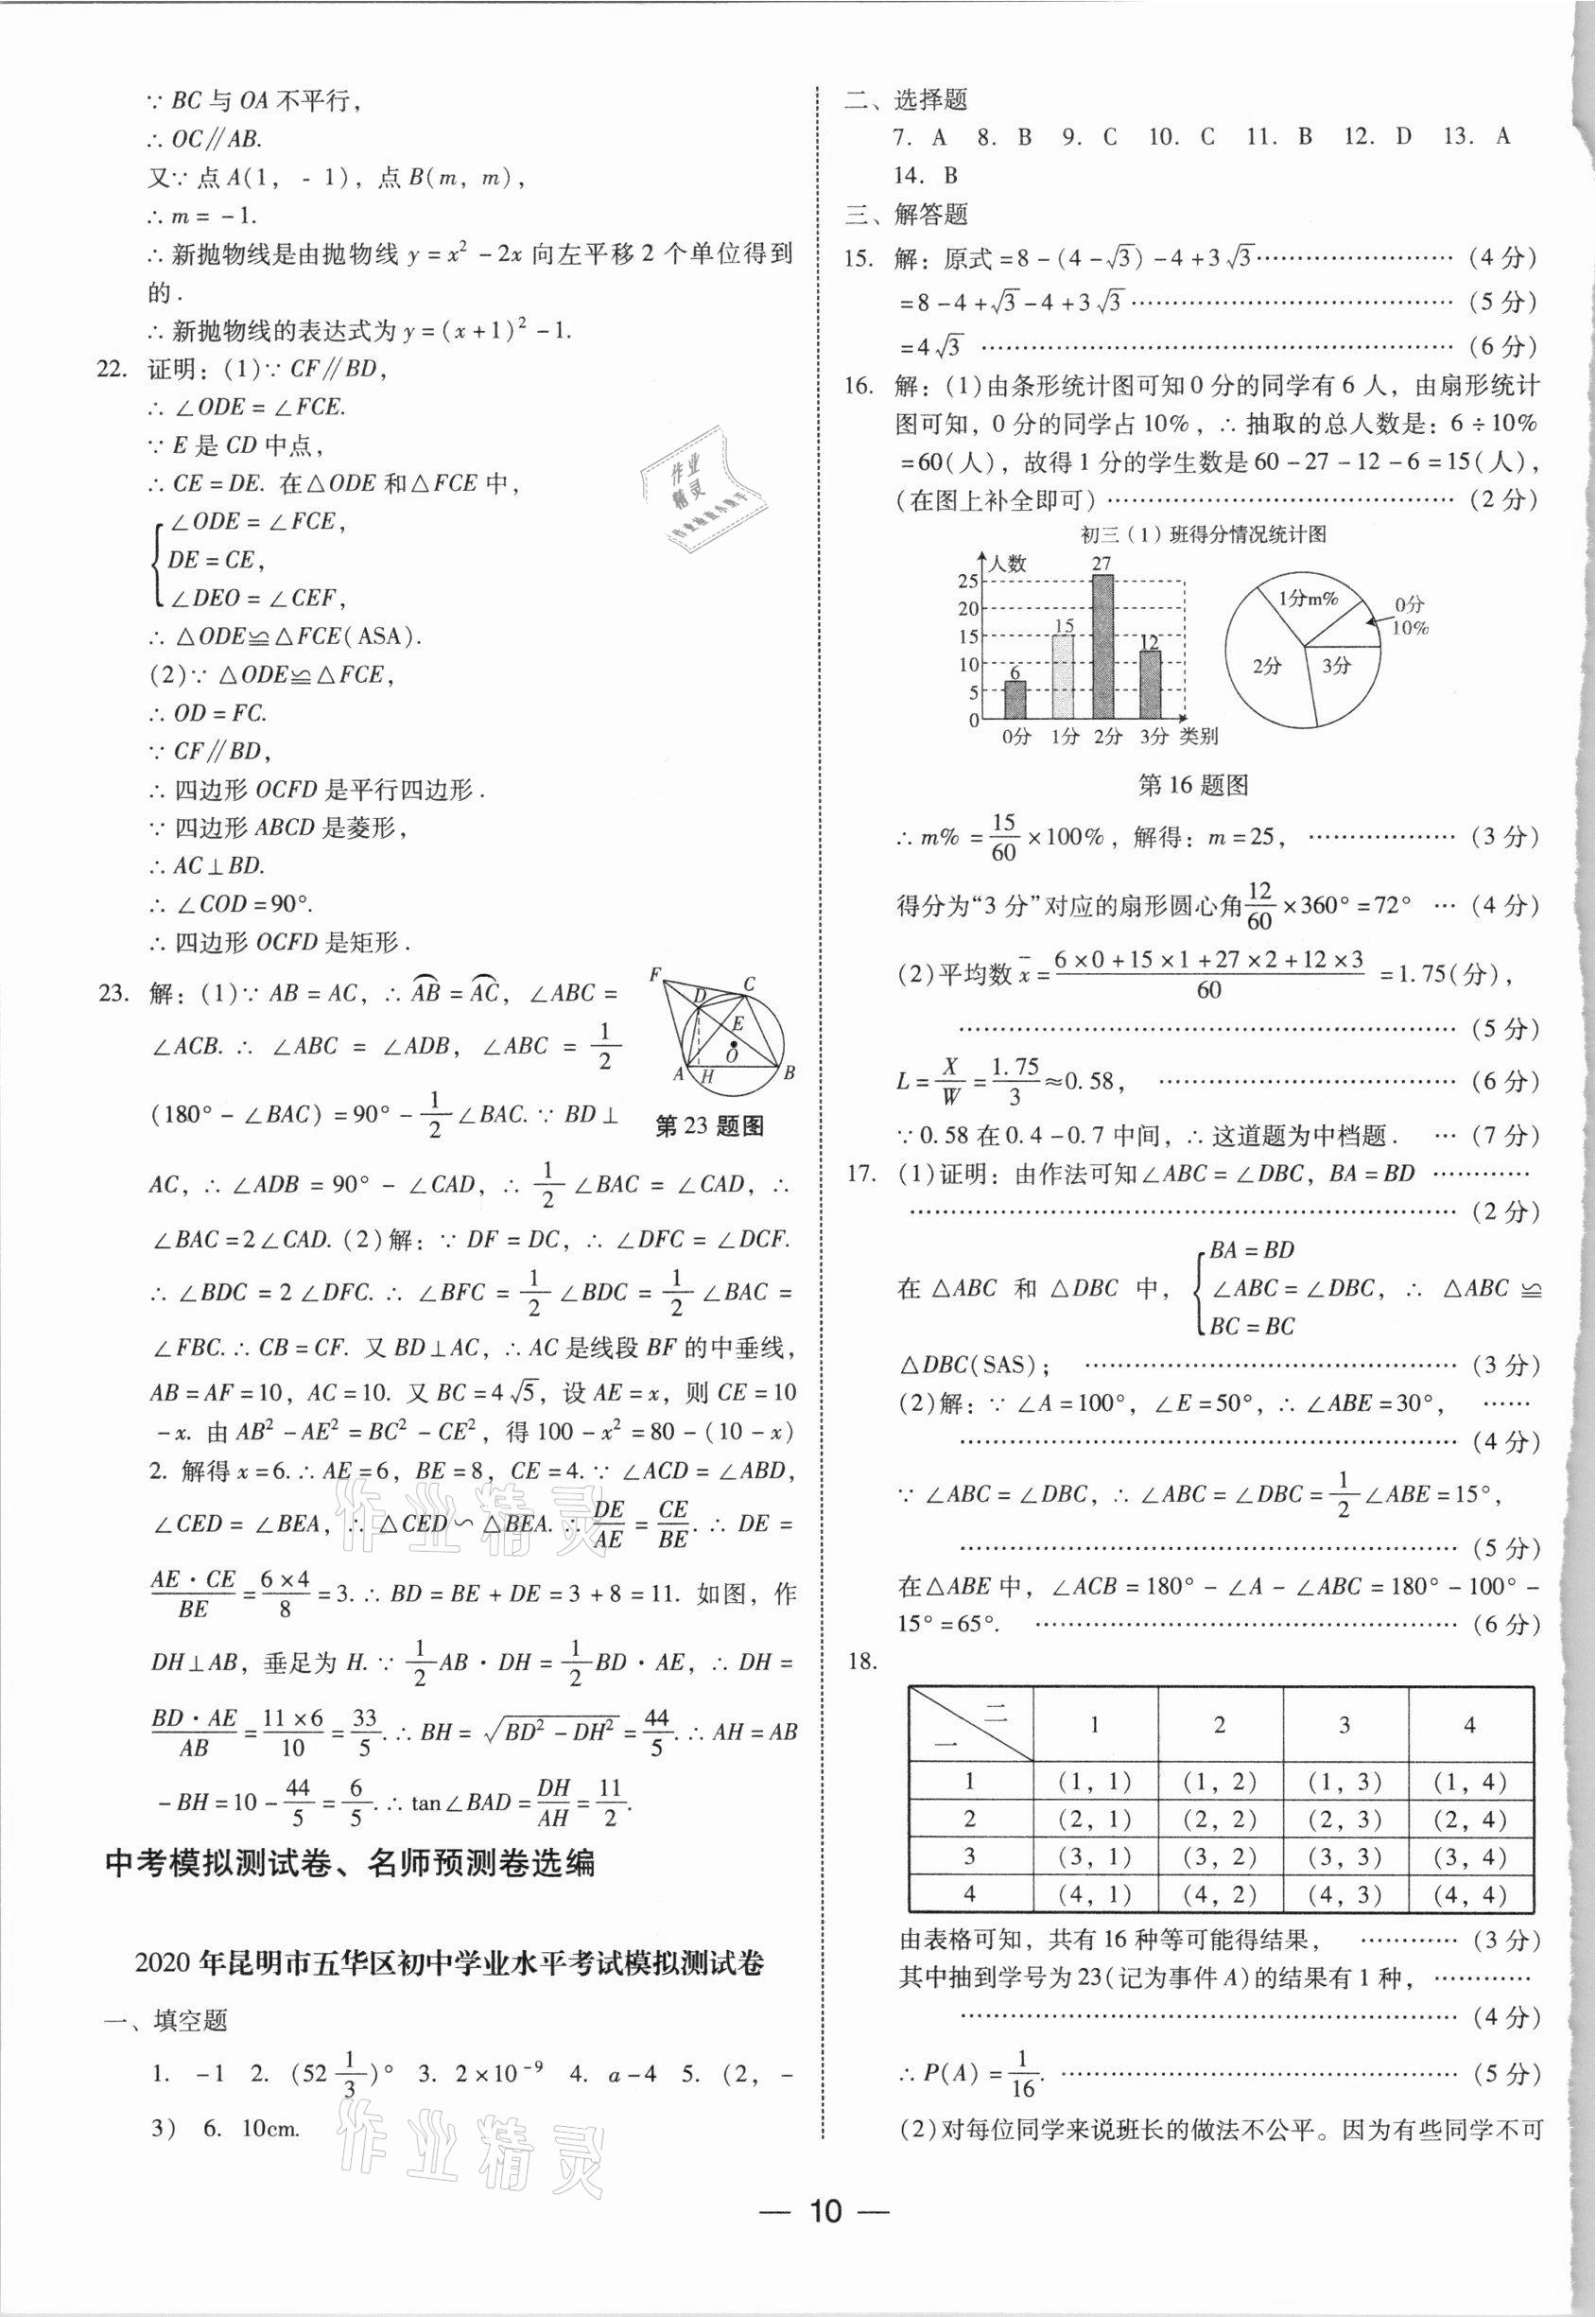 ∵ BC 与 OA 不平行，
∴ OC∥AB.
又∵ 点 A(1， - 1)，点 B(m，m)，
∴ m = -1.
∴ 新抛物线是由抛物线 y = x² - 2x 向左平移 2 个单位得到
的 .
∴ 新抛物线的表达式为 y = (x + 1)² - 1.
22. 证明：(1)∵ CF∥BD，
∴ ∠ODE = ∠FCE.
∵ E 是 CD 中点，
∴ CE = DE. 在△ODE 和△FCE 中，
∠ODE = ∠FCE，
DE = CE，
∠DEO = ∠CEF，
∴ △ODE≌△FCE(ASA).
(2)∵ △ODE≌△FCE，
∴ OD = FC.
∵ CF∥BD，
∴ 四边形 OCFD 是平行四边形 .
∵ 四边形 ABCD 是菱形，
∴ AC⊥BD.
∴ ∠COD = 90°.
∴ 四边形 OCFD 是矩形 .
23. 解：(1)∵ AB = AC，∴ A͡B = A͡C，∠ABC =
∠ACB. ∴ ∠ABC = ∠ADB，∠ABC = 1/2
(180° - ∠BAC) = 90° - 1/2 ∠BAC. ∵ BD⊥
F C D E O A H B
第 23 题图
AC，∴ ∠ADB = 90° - ∠CAD，∴ 1/2 ∠BAC = ∠CAD，∴
∠BAC = 2∠CAD. (2)解：∵ DF = DC，∴ ∠DFC = ∠DCF.
∴ ∠BDC = 2 ∠DFC. ∴ ∠BFC = 1/2 ∠BDC = 1/2 ∠BAC =
∠FBC. ∴ CB = CF. 又 BD⊥AC，∴ AC 是线段 BF 的中垂线，
AB = AF = 10，AC = 10. 又 BC = 4√5，设 AE = x，则 CE = 10
- x. 由 AB² - AE² = BC² - CE²，得 100 - x² = 80 - (10 - x)
2. 解得 x = 6. ∴ AE = 6，BE = 8，CE = 4. ∵ ∠ACD = ∠ABD，
∠CED = ∠BEA，∴ △CED∽△BEA. ∴ DE/AE = CE/BE. ∴ DE =
AE·CE/BE = 6×4/8 = 3. ∴ BD = BE + DE = 3 + 8 = 11. 如图，作
DH⊥AB，垂足为 H. ∵ 1/2 AB · DH = 1/2 BD · AE，∴ DH =
BD·AE/AB = 11×6/10 = 33/5. ∴ BH = √(BD² - DH²) = 44/5. ∴ AH = AB
- BH = 10 - 44/5 = 6/5. ∴ tan∠BAD = DH/AH = 11/2.
中考模拟测试卷、名师预测卷选编
2020 年昆明市五华区初中学业水平考试模拟测试卷
一、填空题
1. -1 2. (52 1/3)° 3. 2×10⁻⁹ 4. a - 4 5. (2，-
3) 6. 10cm.
二、选择题
7. A 8. B 9. C 10. C 11. B 12. D 13. A
14. B
三、解答题
15. 解：原式 = 8 - (4 - √3) - 4 + 3√3 …………………… (4 分)
= 8 - 4 + √3 - 4 + 3√3 ………………………………… (5 分)
= 4√3 ………………………………………………… (6 分)
16. 解：(1)由条形统计图可知 0 分的同学有 6 人，由扇形统计
图可知，0 分的同学占 10%，∴ 抽取的总人数是：6 ÷ 10%
= 60(人)，故得 1 分的学生数是 60 - 27 - 12 - 6 = 15(人)，
(在图上补全即可) …………………………………… (2 分)
初三（1）班得分情况统计图
人数
25 20 15 10 5 0
6 15 27 12
0分 1分 2分 3分 类别
1分m% 0分 10% 2分 3分
第 16 题图
∴ m% = 15/60 × 100%，解得：m = 25， ……………… (3 分)
得分为“3 分”对应的扇形圆心角 12/60 × 360° = 72° … (4 分)
(2)平均数 x̄ = (6×0 + 15×1 + 27×2 + 12×3)/60 = 1.75(分)，
…………………………………………………… (5 分)
L = X/W = 1.75/3 ≈ 0.58， ……………………………… (6 分)
∵ 0.58 在 0.4 - 0.7 中间，∴ 这道题为中档题 . … (7 分)
17. (1)证明：由作法可知∠ABC = ∠DBC，BA = BD …………
………………………………………………………… (2 分)
在 △ABC 和 △DBC 中，{BA = BD
∠ABC = ∠DBC，∴ △ABC ≌
BC = BC
△DBC(SAS)； ……………………………………… (3 分)
(2)解：∵ ∠A = 100°，∠E = 50°，∴ ∠ABE = 30°， ……
…………………………………………………… (4 分)
∵ ∠ABC = ∠DBC，∴ ∠ABC = ∠DBC = 1/2 ∠ABE = 15°，
…………………………………………………… (5 分)
在△ABE 中，∠ACB = 180° - ∠A - ∠ABC = 180° - 100° -
15° = 65°. …………………………………………… (6 分)
18.
二 一 1 2 3 4
1 (1，1) (1，2) (1，3) (1，4)
2 (2，1) (2，2) (2，3) (2，4)
3 (3，1) (3，2) (3，3) (3，4)
4 (4，1) (4，2) (4，3) (4，4)
由表格可知，共有 16 种等可能得结果， ………… (3 分)
其中抽到学号为 23(记为事件 A)的结果有 1 种，…………
…………………………………………………… (4 分)
∴ P(A) = 1/16. ………………………………………… (5 分)
(2)对每位同学来说班长的做法不公平。因为有些同学不可
— 10 —
作业精灵
作业精灵
作业精灵